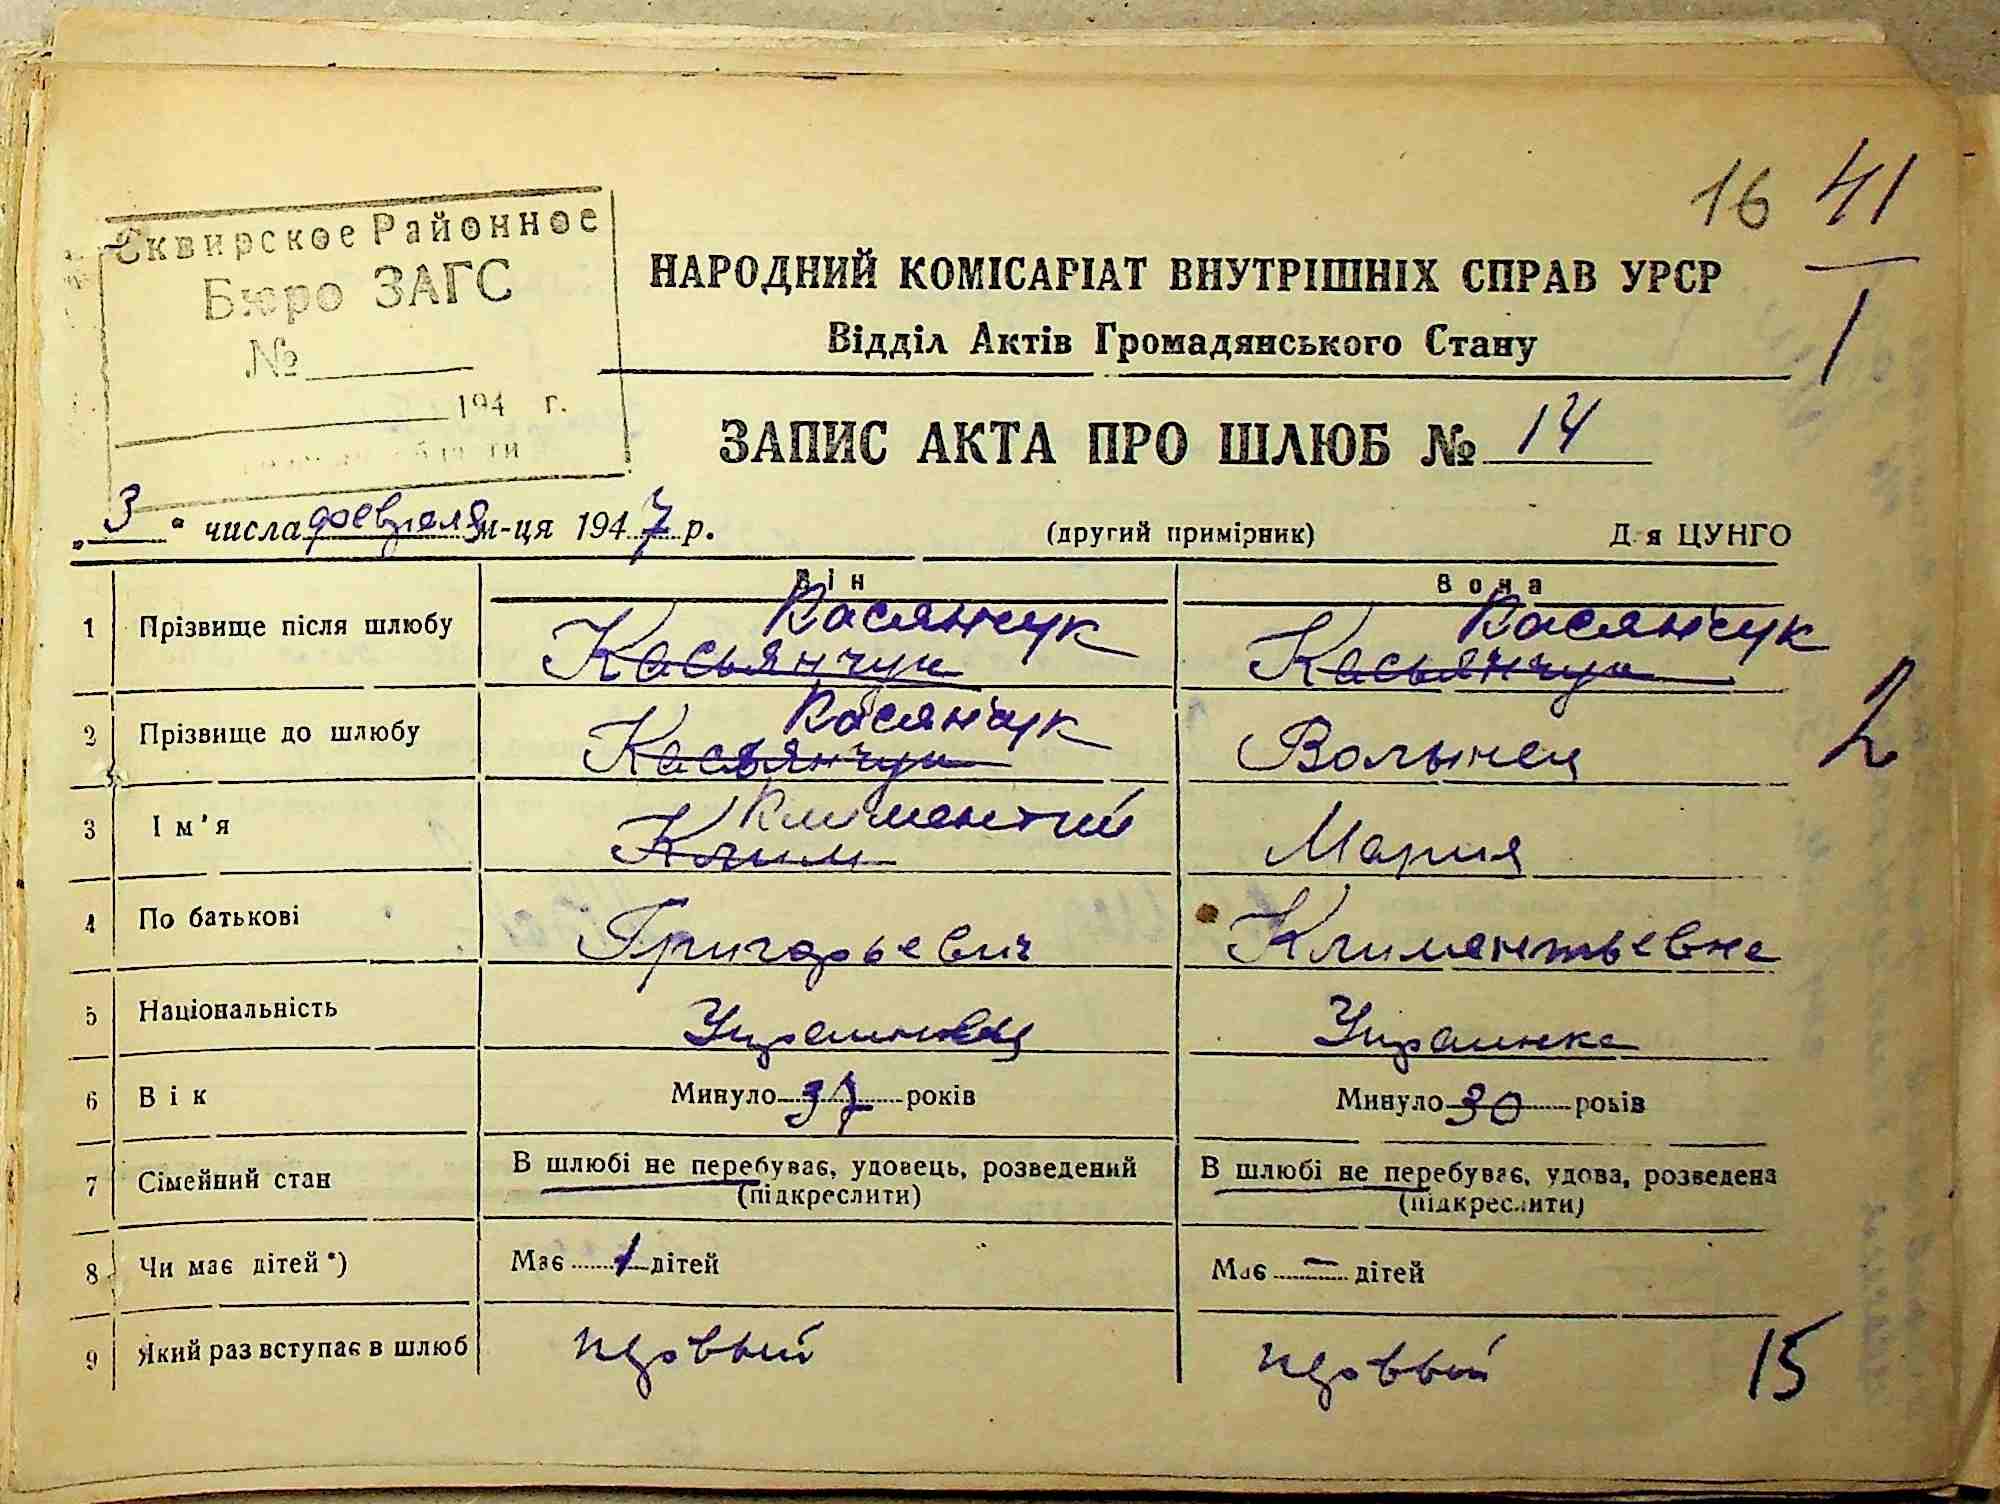 16 41
1
Сквирское Районное
Бюро ЗАГС
№
194 г.
НАРОДНИЙ КОМІСАРІАТ ВНУТРІШНІХ СПРАВ УРСР
Відділ Актів Громадянського Стану
ЗАПИС АКТА ПРО ШЛЮБ № 14
„3“ числа февраля м-ця 1947 р. (другий примірник) Д-я ЦУНГО
Він Вона
Касянчук Касянчук
1 Прізвище після шлюбу Касьянчук Касьянчук
Касянчук 2
2 Прізвище до шлюбу Касьянчук Волынец
Климентий
3 Ім'я Клим Мария
4 По батькові Григорьевич Климентьевна
5 Національність Украинец Украинка
6 Вік Минуло 37 років Минуло 30 років
7 Сімейний стан В шлюбі не перебуває, удовець, розведений В шлюбі не перебуває, удова, розведена
(підкреслити) (підкреслити)
8 Чи має дітей*) Має 1 дітей Має – дітей
9 Який раз вступає в шлюб первый первый 15